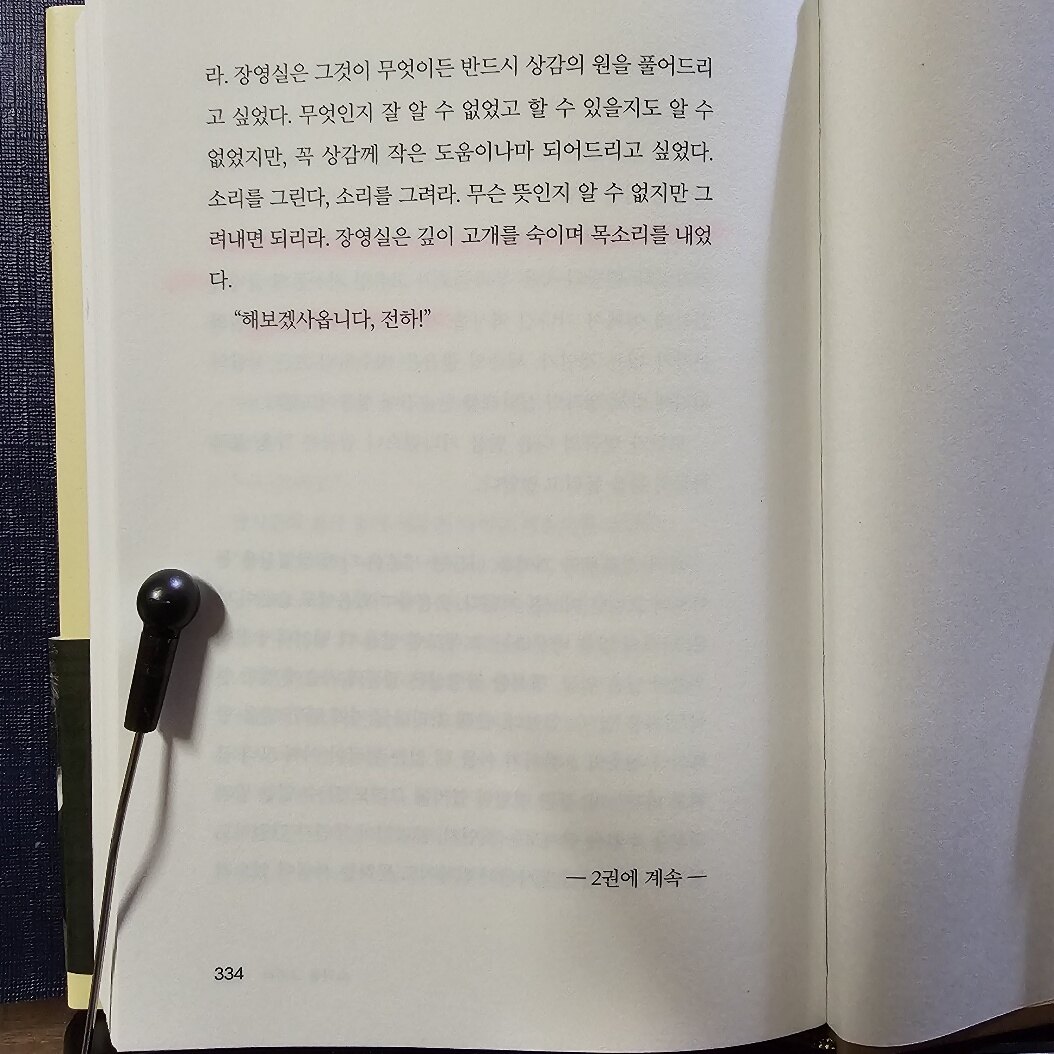 라. 장영실은 그것이 무엇이든 반드시 상감의 원을 풀어드리
고 싶었다. 무엇인지 잘 알 수 없었고 할 수 있을지도 알 수
없었지만, 꼭 상감께 작은 도움이나마 되어드리고 싶었다.
소리를 그린다, 소리를 그려라. 무슨 뜻인지 알 수 없지만 그
려내면 되리라. 장영실은 깊이 고개를 숙이며 목소리를 내었
다.
“해보겠사옵니다, 전하!”
— 2권에 계속 —
334